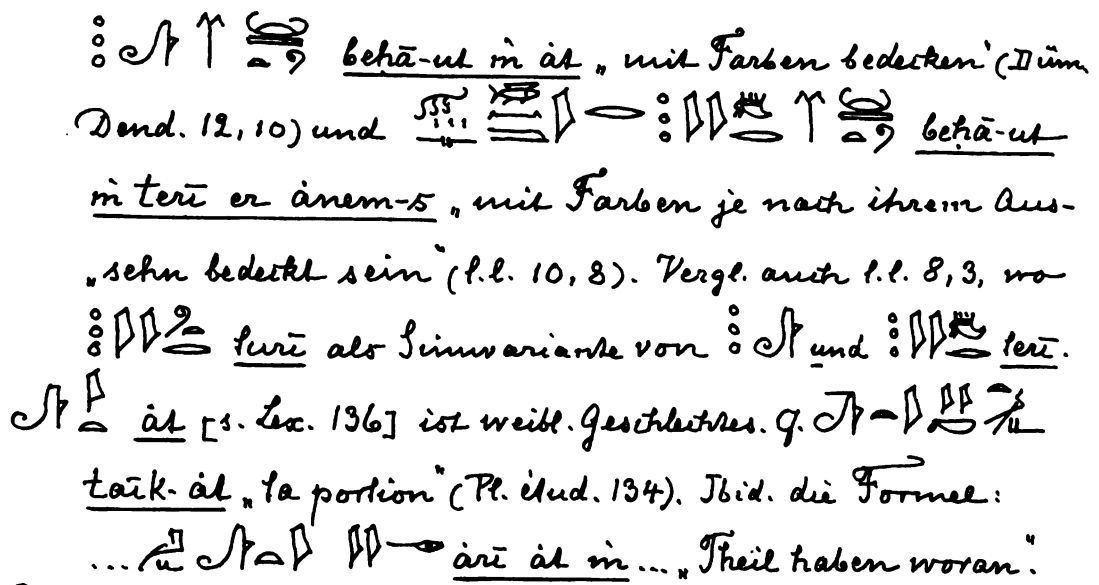 beḥā-ut ṁ át „mit Farben bedecken“ (Düm.
Dend. 12, 10) und beḥā-ut
ṁ terī er ánem-s „mit Farben je nach ihrem Aus-
„sehn bedeckt sein“ (l.l. 10, 8). Vergl. auch l.l. 8, 3, wo
turī als Sinnvariante von und terī.
át [s. Lex. 136] ist weibl. Geschlechtes. Q.
taīk-át „la portion“ (Pl. étud. 134). Ibid. die Formel:
... árī át ṁ ... „Theil haben woran“.